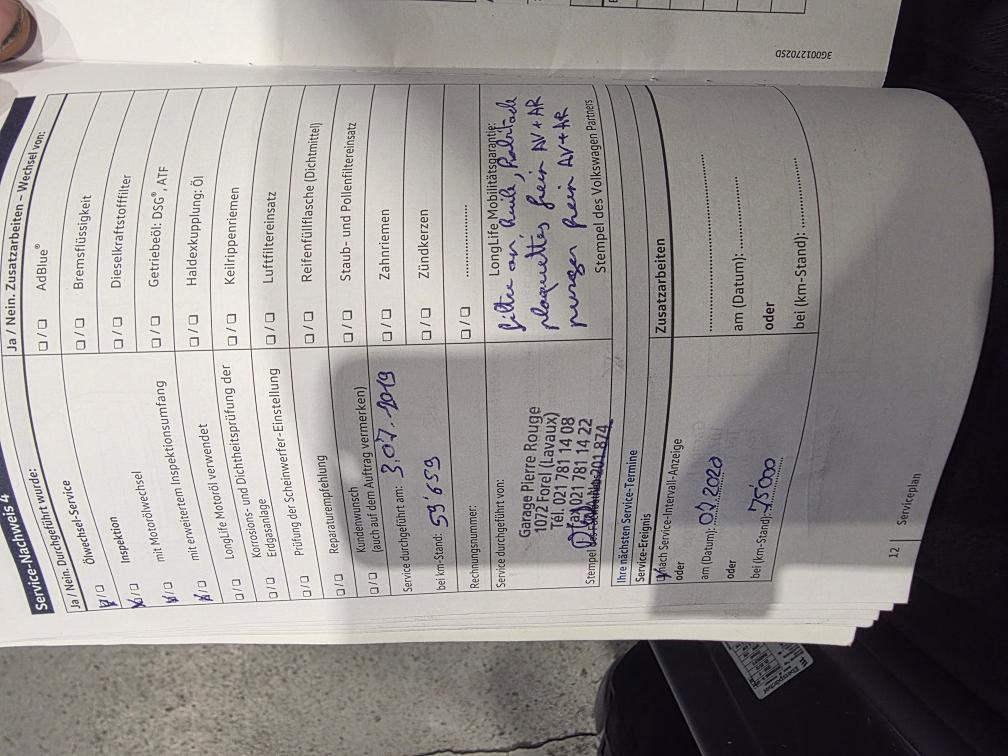 3G0012702SD
Service-Nachweis 4
Ja / Nein. Durchgeführt wurde:
Ölwechsel-Service
Inspektion
mit Motorölwechsel
mit erweitertem Inspektionsumfang
LongLife Motoröl verwendet
Korrosions- und Dichtheitsprüfung der
Erdgasanlage
Prüfung der Scheinwerfer-Einstellung
Reparaturempfehlung
Kundenwunsch
(auch auf dem Auftrag vermerken)
Service durchgeführt am: 3.07.2019
bei km-Stand: 59'659
Rechnungsnummer:
Service durchgeführt von:
Garage Pierre Rouge
1072 Forel (Lavaux)
Tél. 021 781 14 08
Fax 021 781 14 22
Stempel
Ja / Nein. Zusatzarbeiten – Wechsel von:
AdBlue®
Bremsflüssigkeit
Dieselkraftstofffilter
Getriebeöl: DSG®, ATF
Haldexkupplung: Öl
Keilrippenriemen
Luftfiltereinsatz
Reifenfüllflasche (Dichtmittel)
Staub- und Pollenfiltereinsatz
Zahnriemen
Zündkerzen
LongLife Mobilitätsgarantie:
filtre huile,
plaquettes frein AV + AR
frein AV + AR
Stempel des Volkswagen Partners
Ihre nächsten Service-Termine
Service-Ereignis
nach Service-Intervall-Anzeige
oder
am (Datum): 07.2020
oder
bei (km-Stand): 75'000
Zusatzarbeiten
am (Datum):
oder
bei (km-Stand):
12
Serviceplan